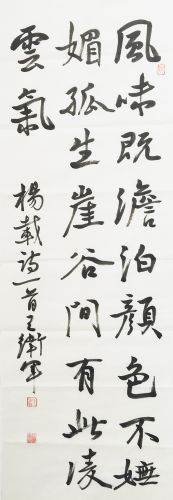 風味既澹泊顏色不嫵
媚孤生崖谷間有此凌
雲氣
楊載詩一首王衛軍